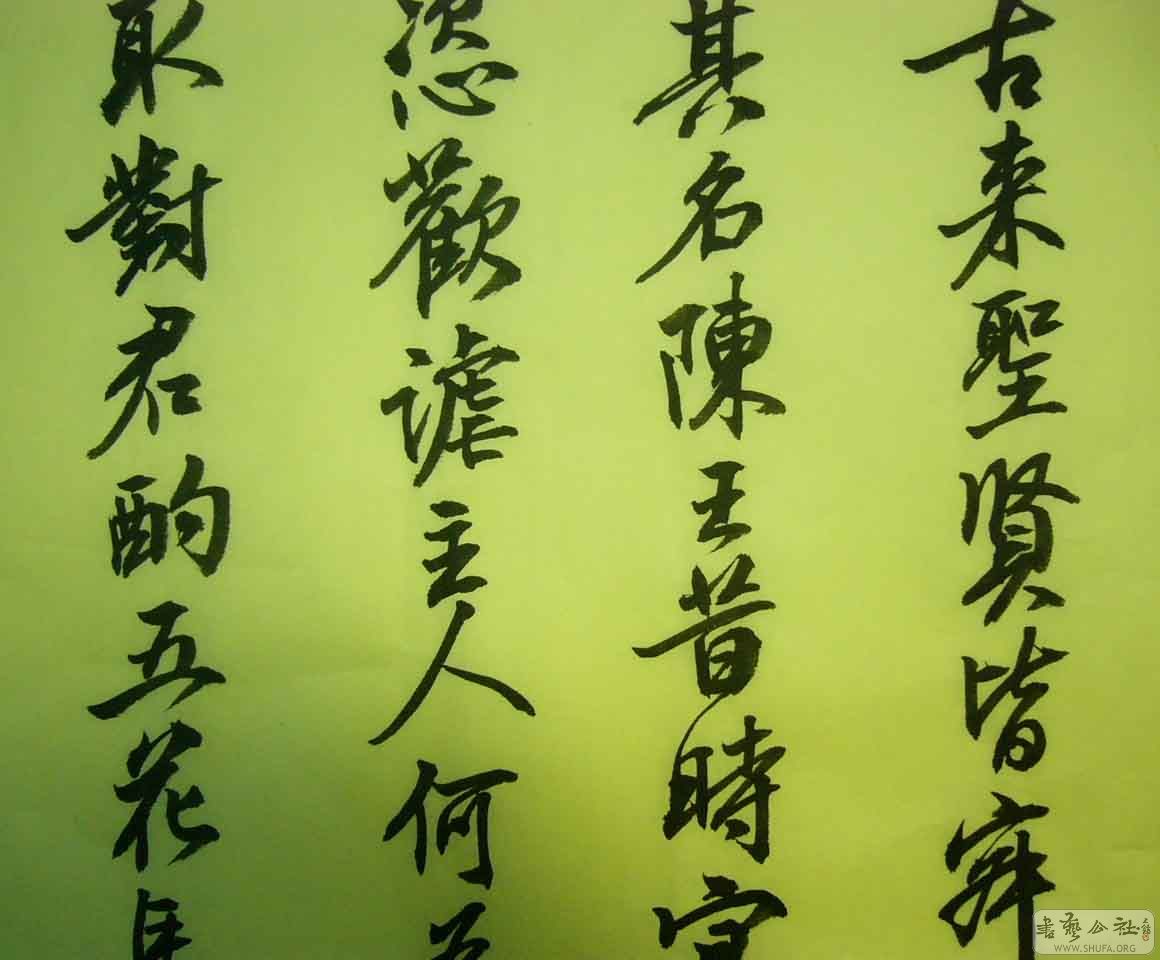 古来聖賢皆寂
其名陳王昔時宴
恣歡謔主人何為
取對君酌五花馬
書藝公社
WWW.SHUFA.ORG